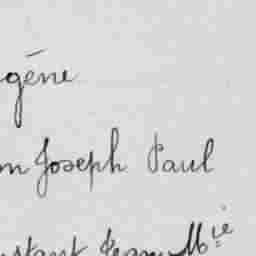 gène
n Joseph Paul
nstant Jean Mie